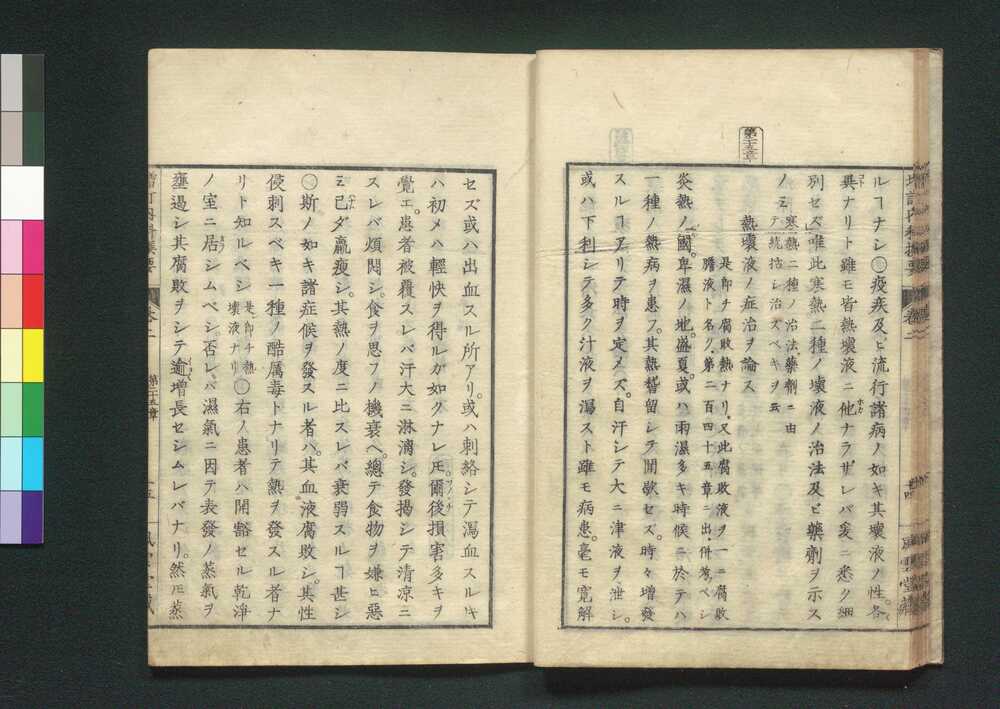 第二十五章
ルヿナシ○疫疾及ヒ流行諸病ノ如キ其壊液ノ性各
異ナリト雖モ皆熱壊液ニ他ナラザレバ爰ニ悉ク細
別セズ唯此寒熱二種ノ壊液ノ治法及ビ藥劑ヲ示ス
ノミ
寒熱二種ノ治法藥劑ニ由
テ統括シ治スベキヲ云
熱壊液ノ症治ヲ論ス
是即チ腐敗熱ナリ又此腐敗液ヲ一ニ腐敗
膽液ト名ク第二百四十五章ニ出併考ベシ
炎熱ノ國卑濕ノ地盛夏或ハ雨濕多キ時候ニ於テハ
一種ノ熱病ヲ患フ其熱稽留シテ間歇セズ時々增發
スルヿアリテ時ヲ定メズ自汗シテ大ニ津液ヲ泄シ
或ハ下利シテ多ク汁液ヲ瀉スト雖モ病患毫モ寛解
セズ或ハ出血スル所アリ或ハ刺絡シテ瀉血スルキ
ハ初メハ輕快ヲ得ルガ如クナレ𪜈爾後損害多キヲ
覺エ患者被覆スレバ汗大ニ淋漓シ發揚シテ清凉ニ
スレバ煩悶シ食ヲ思フノ機衰ヘ總テ食物ヲ嫌ヒ惡
ミ已ダ羸瘦シ其熱ノ度ニ比スレバ衰弱スルヿ甚シ
○斯ノ如キ諸症候ヲ發スル者ハ其血液腐敗シ其性
侵刺スベキ一種ノ酷厲毒トナリテ熱ヲ發スル者ナ
リト知ルベシ
是即チ熱
壊液ナリ
○右ノ患者ハ開豁セル乾淨
ノ室ニ居シムベシ否レバ濕氣ニ因テ表發ノ蒸氣ヲ
壅遏シ其腐敗ヲシテ逾增長セシムレバナリ然𪜈蒸
第二十五章
十五